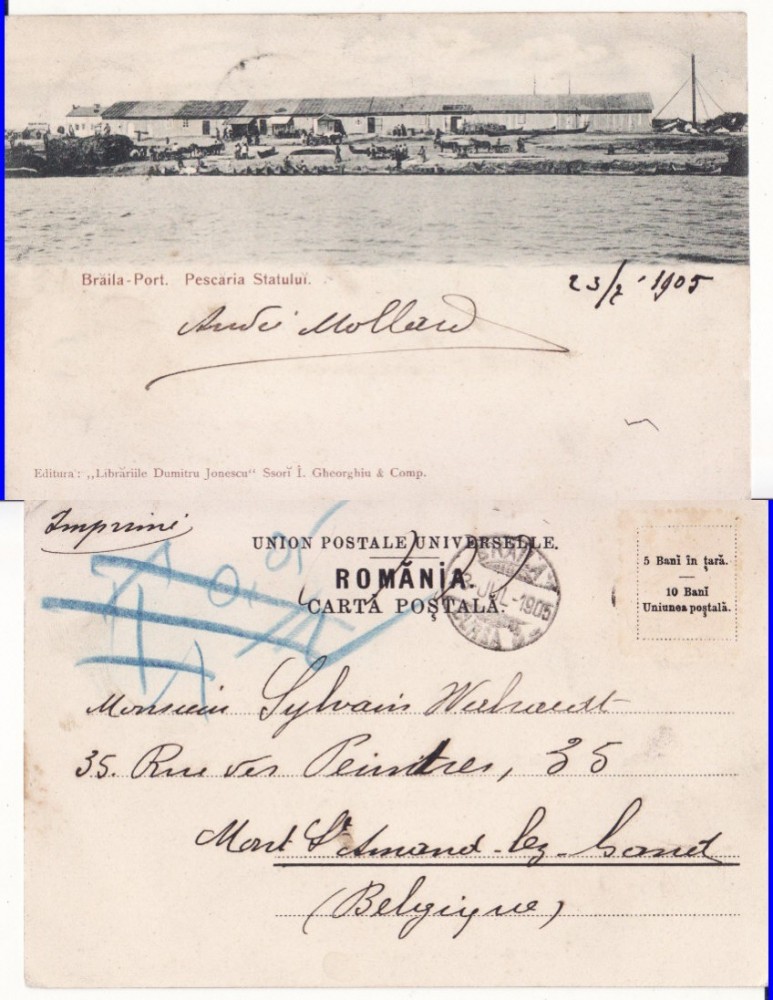 Brăila-Port. Pescăria Statuluĭ.
23/7 1905
André Mollard
Editura: „Librăriile Dumitru Jonescu“ Ssorĭ I. Gheorghiu & Comp.
Imprimé
UNION POSTALE UNIVERSELLE.
ROMÂNIA.
CARTĂ POȘTALĂ.
BRAILA
JUL 1905
5 Banĭ în țară.
10 Banĭ
Uniunea poștală.
Monsieur Sylvain
35. Rue des Peintres, 35
Mont St Amand-lez-Gand
(Belgique)